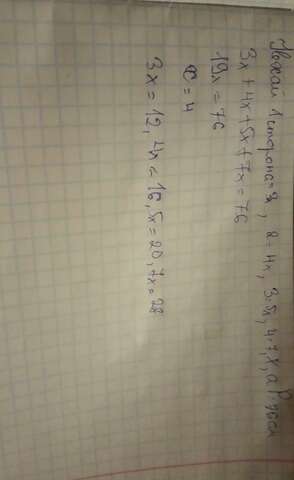 Нехай 1 сторона = 3х, 2 = 4х, 3 = 5х, 4 = 7х, а Р = 76см
3x + 4x + 5x + 7x = 76
19x = 76
x = 4
3x = 12, 4x = 16, 5x = 20, 7x = 28